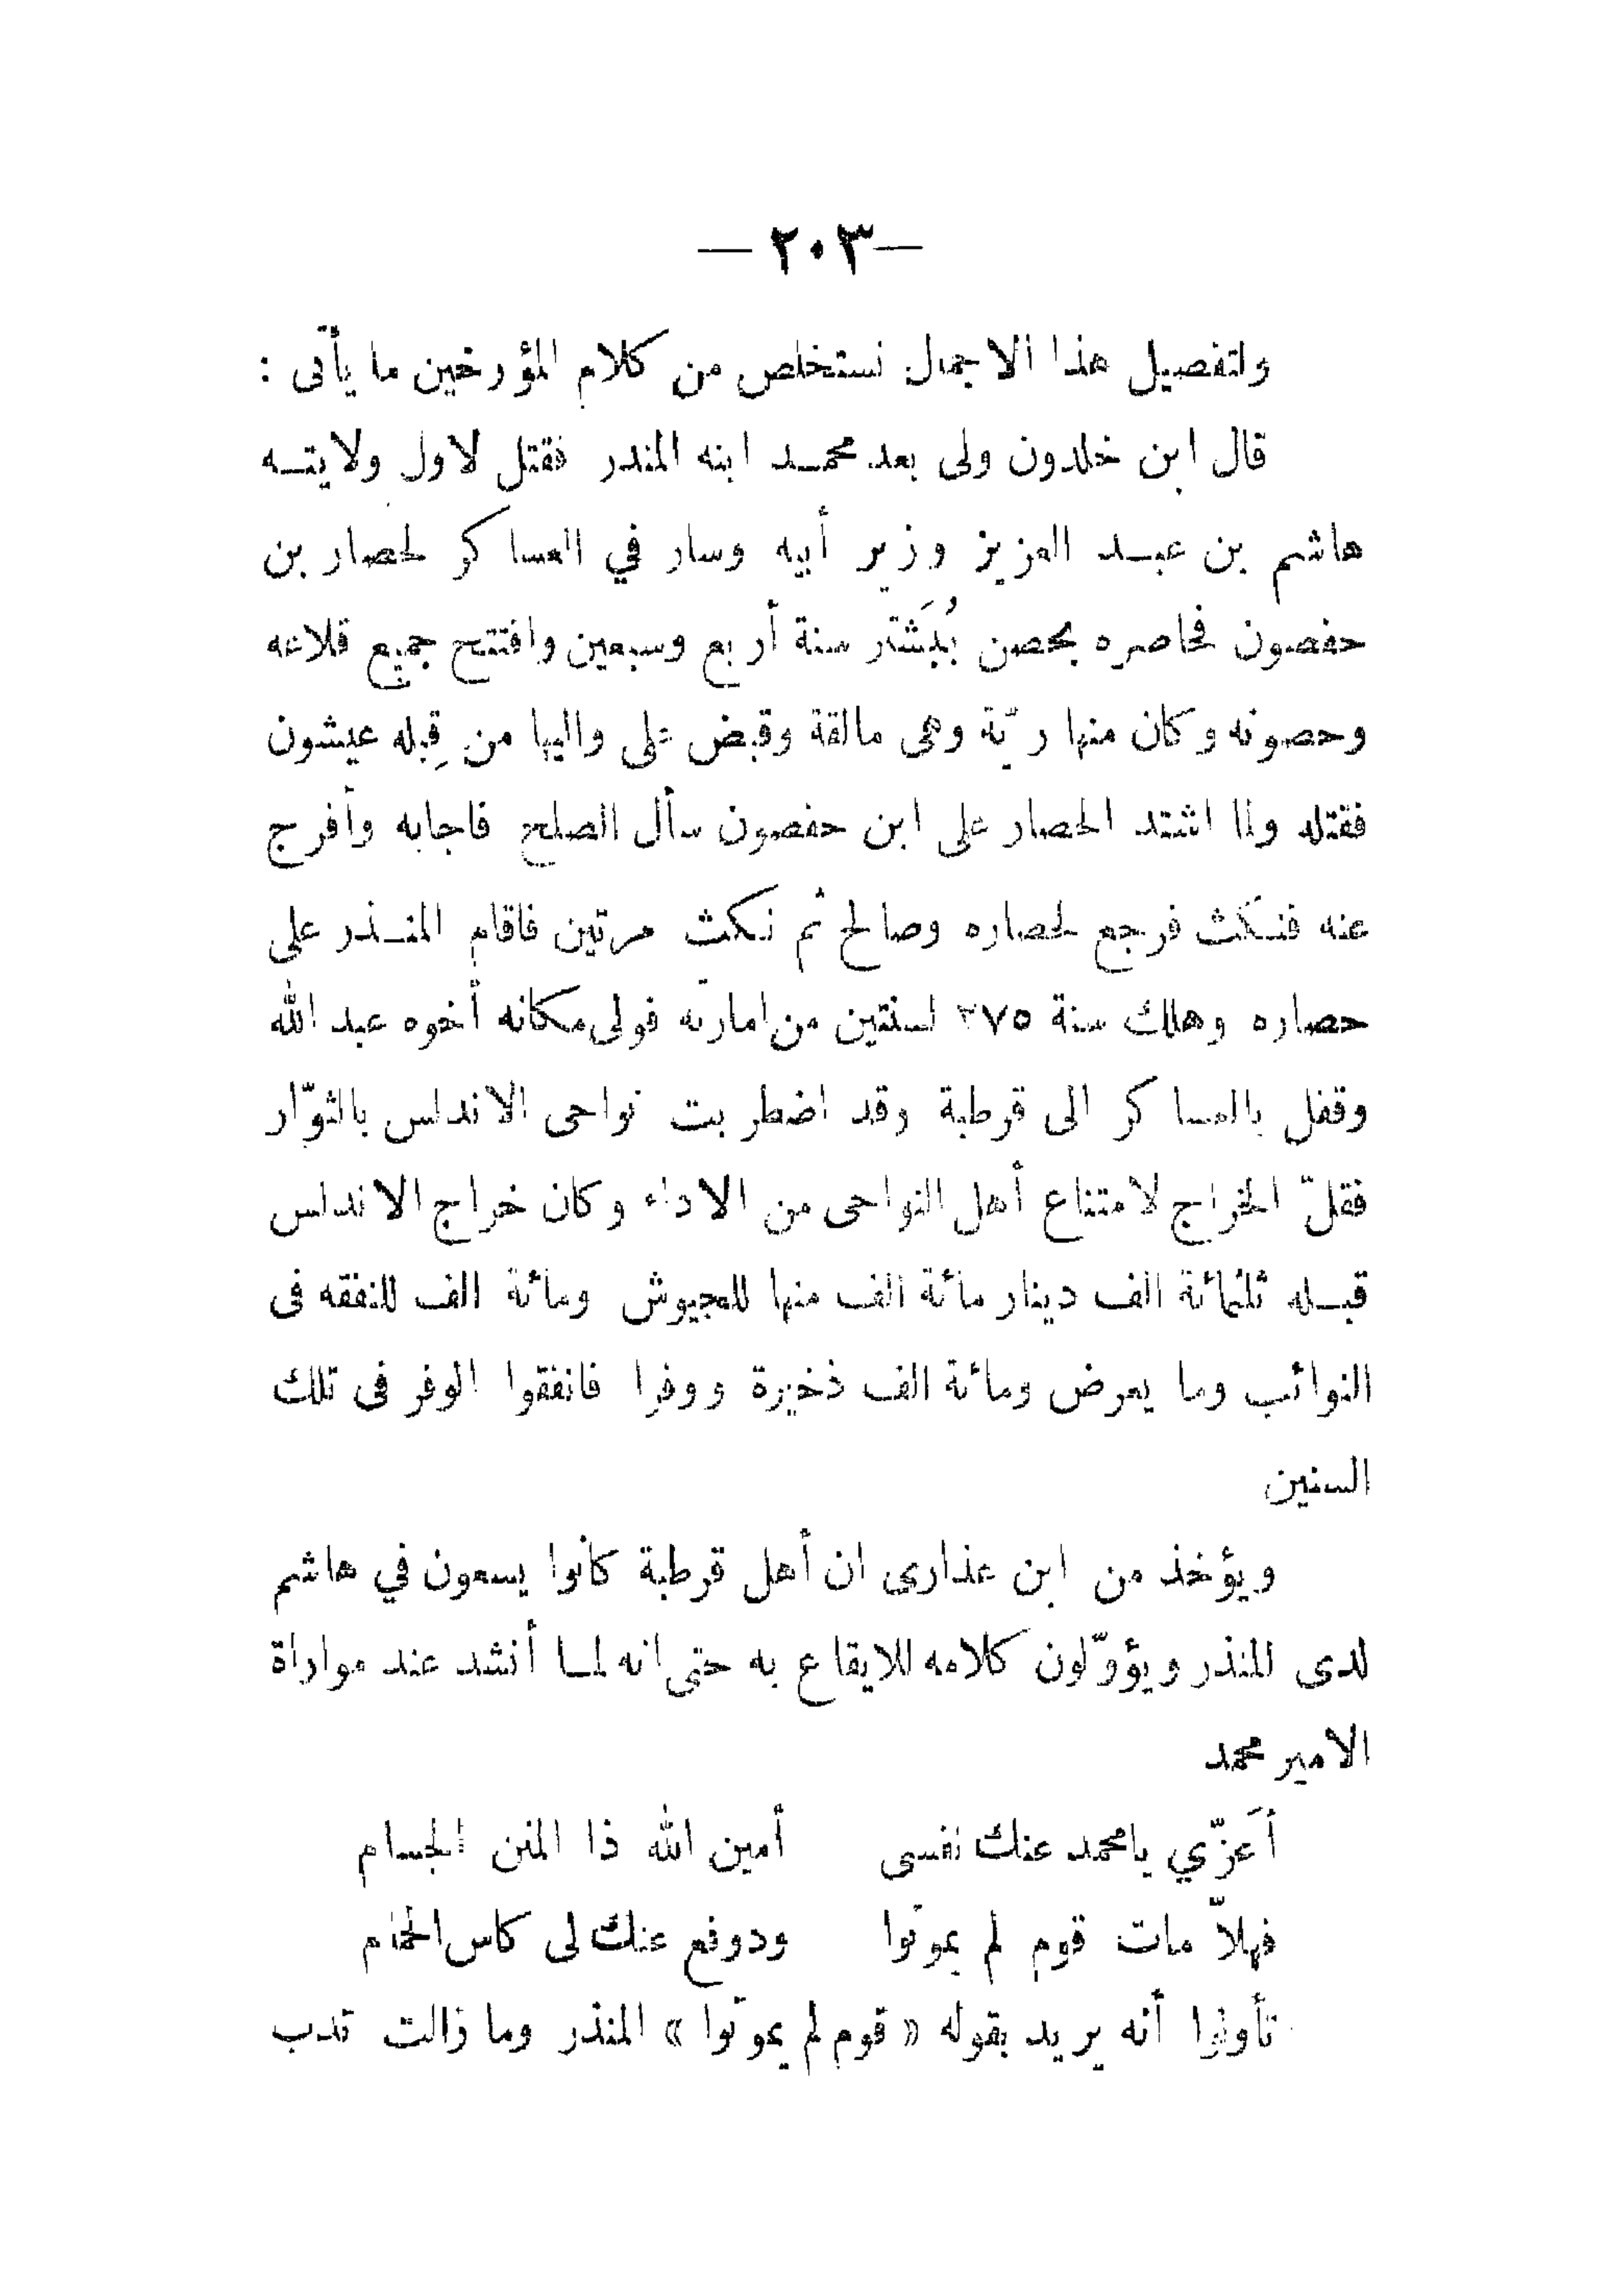 — ٢٠٣ —
ولتفصيل هذا الاجمال نستخلص من كلام المؤرخين ما يأتى :
قال ابن خلدون ولى بعد محمد ابنه المنذر فقتل لاول ولايته
هاشم بن عبد العزيز وزير أبيه وسار في العساكر لحصار بن
حفصون فحاصره بحصن بُبَشتر سنة أربع وسبعين وافتتح جميع قلاعه
وحصونه وكان منها ريّة وهى مالقة وقبض على واليها من قِبله عيشون
فقتله ولما اشتد الحصار على ابن حفصون سأل الصلح فاجابه وأفرج
عنه فنكث فرجع لحصاره وصالح ثم نكث مرتين فاقام المنذر على
حصاره وهلك سنة ٢٧٥ لسنتين من امارته فولى مكانه أخوه عبد الله
وقفل بالعساكر الى قرطبة وقد اضطربت نواحى الاندلس بالثوّار
فقلّ الخراج لامتناع أهل النواحى من الاداء وكان خراج الاندلس
قبله ثلثمائة الف دينار مائة الف منها للجيوش ومائة الف للنفقه فى
النوائب وما يعرض ومائة الف ذخيرة ووفرا فانفقوا الوفر فى تلك
السنين
ويؤخذ من ابن عذارى ان أهل قرطبة كانوا يسعون في هاشم
لدى المنذر ويؤوّلون كلامه للايقاع به حتى انه لما أنشد عند مواراة
الامير محمد
أَعزّي يامحمد عنك نفسى أمين الله ذا المنن الجسام
فهلاّ مات قوم لم يموتوا ودوفع عنك لى كاس الحمام
تأولوا أنه يريد بقوله « قوم لم يموتوا » المنذر وما زالت تدب